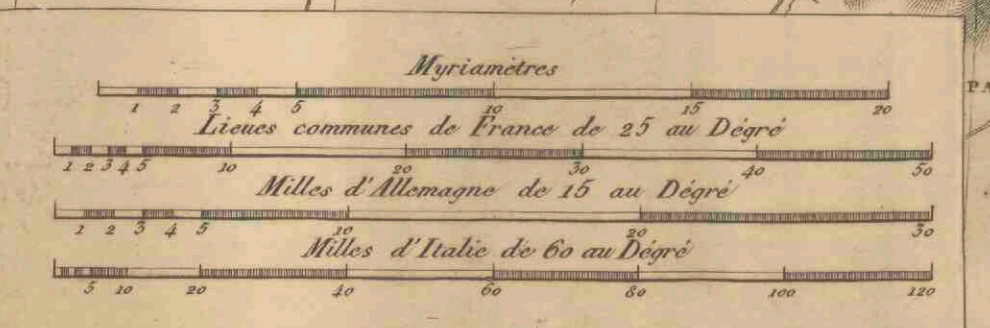 Myriamètres
1 2 3 4 5 10 15 20
Lieues communes de France de 25 au Dégré
1 2 3 4 5 10 20 30 40 50
Milles d'Allemagne de 15 au Dégré
1 2 3 4 5 10 20 30
Milles d'Italie de 60 au Dégré
5 10 20 40 60 80 100 120